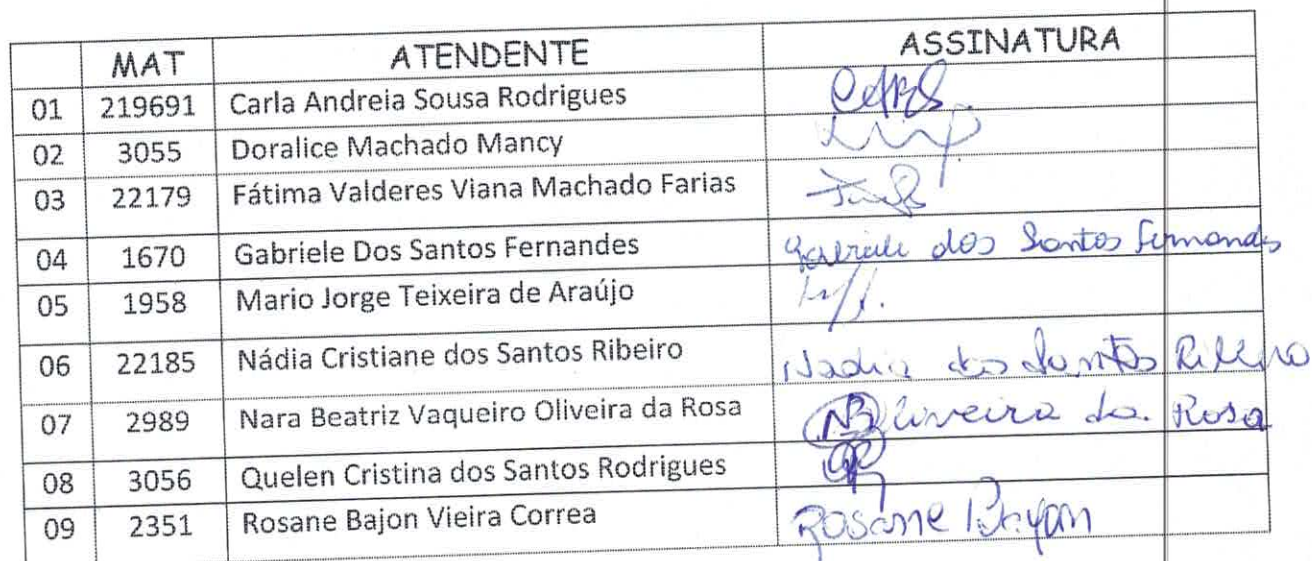 MAT ATENDENTE ASSINATURA
01 219691 Carla Andreia Sousa Rodrigues
02 3055 Doralice Machado Mancy
03 22179 Fátima Valderes Viana Machado Farias
04 1670 Gabriele Dos Santos Fernandes Gabriele dos Santos Fernandes
05 1958 Mario Jorge Teixeira de Araújo
06 22185 Nádia Cristiane dos Santos Ribeiro Nadia dos Santos Ribeiro
07 2989 Nara Beatriz Vaqueiro Oliveira da Rosa NB Oliveira da. Rosa
08 3056 Quelen Cristina dos Santos Rodrigues
09 2351 Rosane Bajon Vieira Correa Rosane Bajon